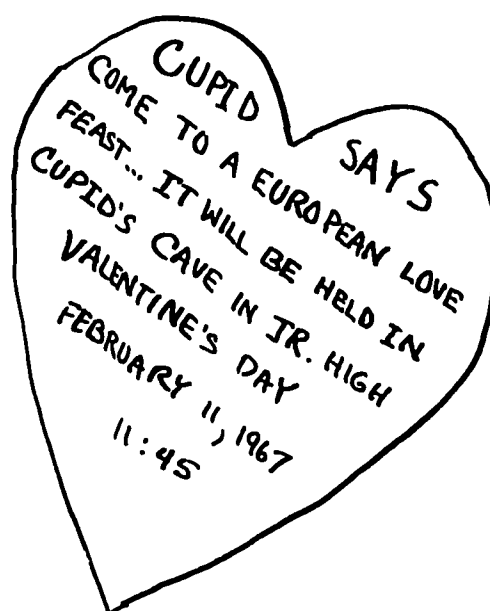 CUPID SAYS
COME TO A EUROPEAN LOVE
FEAST... IT WILL BE HELD IN
CUPID'S CAVE IN JR. HIGH
VALENTINE'S DAY
FEBRUARY 11, 1967
11:45